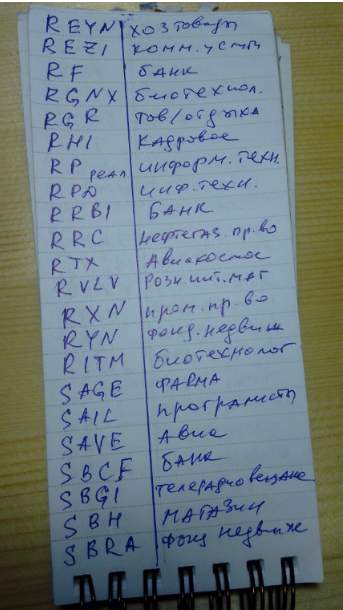 REYN хозтовары
REZI комм. услуги
RF банк
RGNX биотехнол.
RGR тов/отдыха
RHI кадровое
RP реал информ. техн.
RPD инф. техн.
RRBI БАНК
RRC нефтегаз. пр.во
RTX Авиакосмос
RVLV розн. инт. маг
RXN пром. пр. во
RYN фонд. недвиж
RITM биотехнолог
SAGE ФАРМА
SAIL програмисты
SAVE Авиа
SBCF БАНК
SBGI телерадиовещание
SBH МАГАЗИН
SBRA фонд недвиж